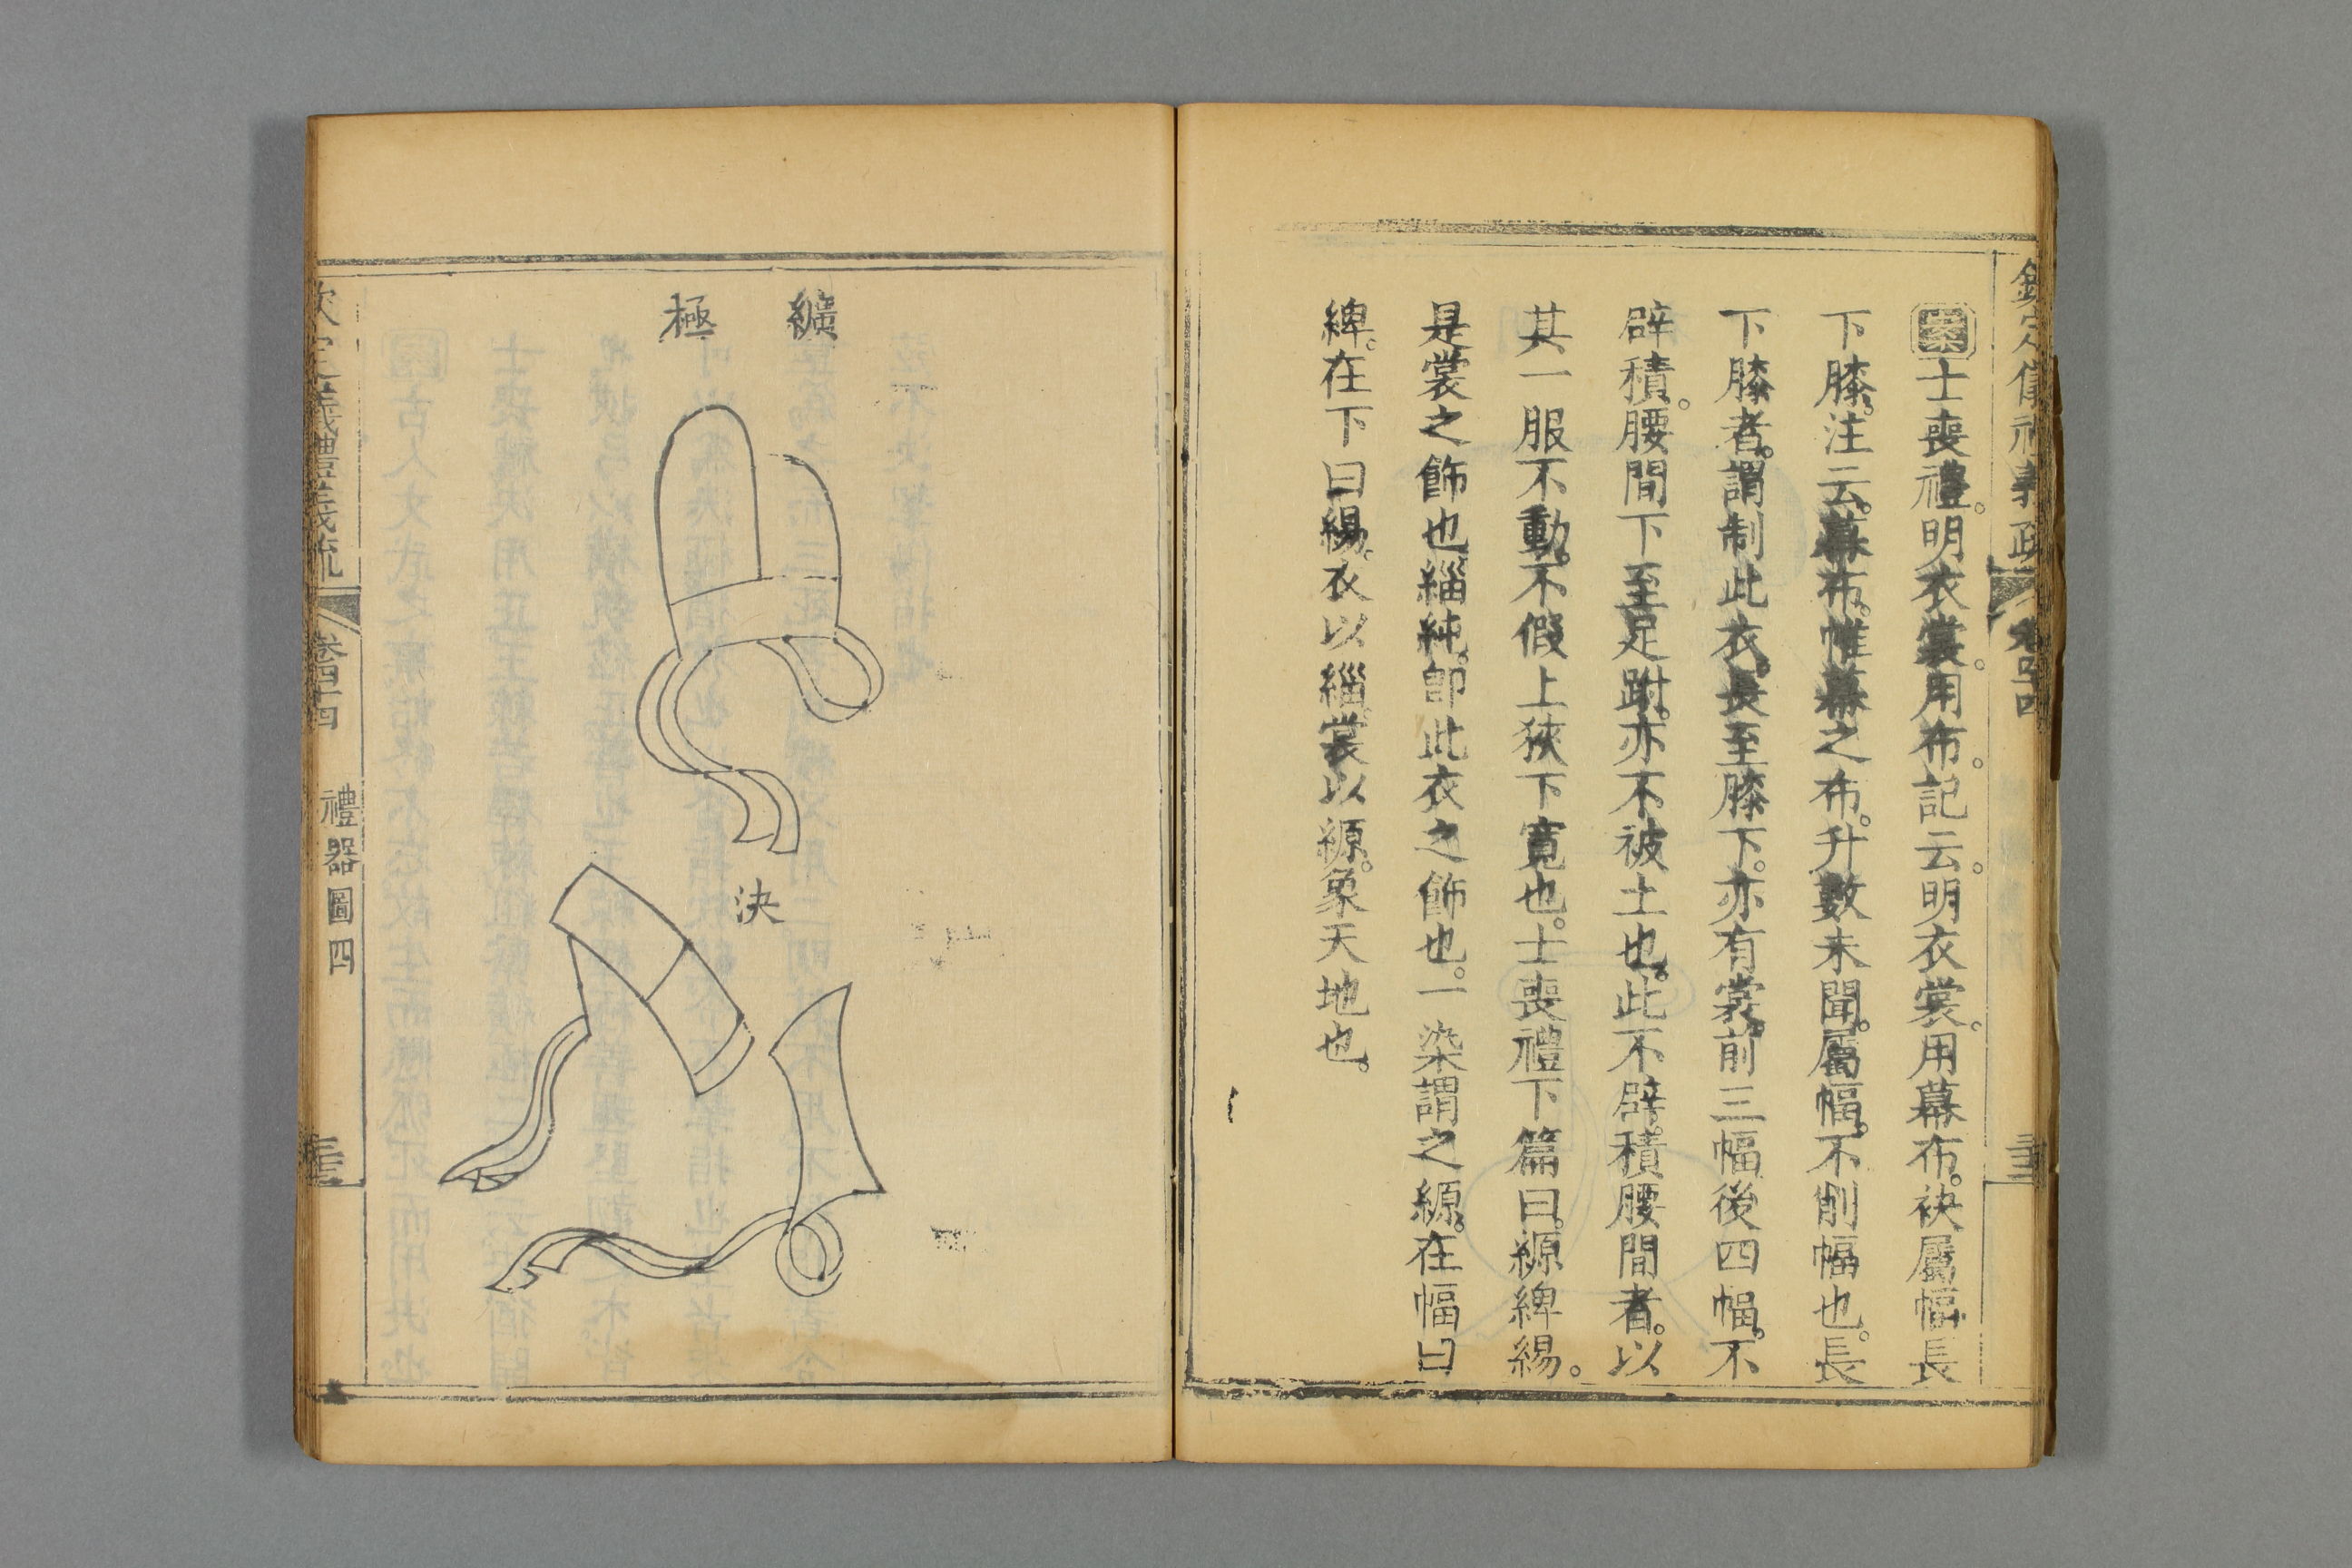 欽定儀禮義疏 卷四十四
案士喪禮。明衣裳。用布。記云。明衣裳。用幕布。袂屬幅。長
下膝。注云。幕布。帷幕之布。升數未聞。屬幅。不削幅也。長
下膝者。謂制此衣。長至膝下。亦有裳。前三幅後四幅。不
辟積。腰間下至足跗。亦不被土也。此不辟。積腰間者。以
其一服不動。不假上狹下寬也。士喪禮下篇曰。縓綼緆。
是裳之飾也。緇純。卽此衣之飾也。一染謂之縓。在幅曰
綼。在下曰緆。衣以緇。裳以縓。象天地也。
纊
極
決
欽定儀禮義疏 卷四十四 禮器圖四